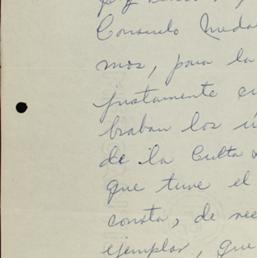 Consuelo
mos, para la
justamente
braban los
de la Culta
que tuve el
consta, de
ejemplar, que